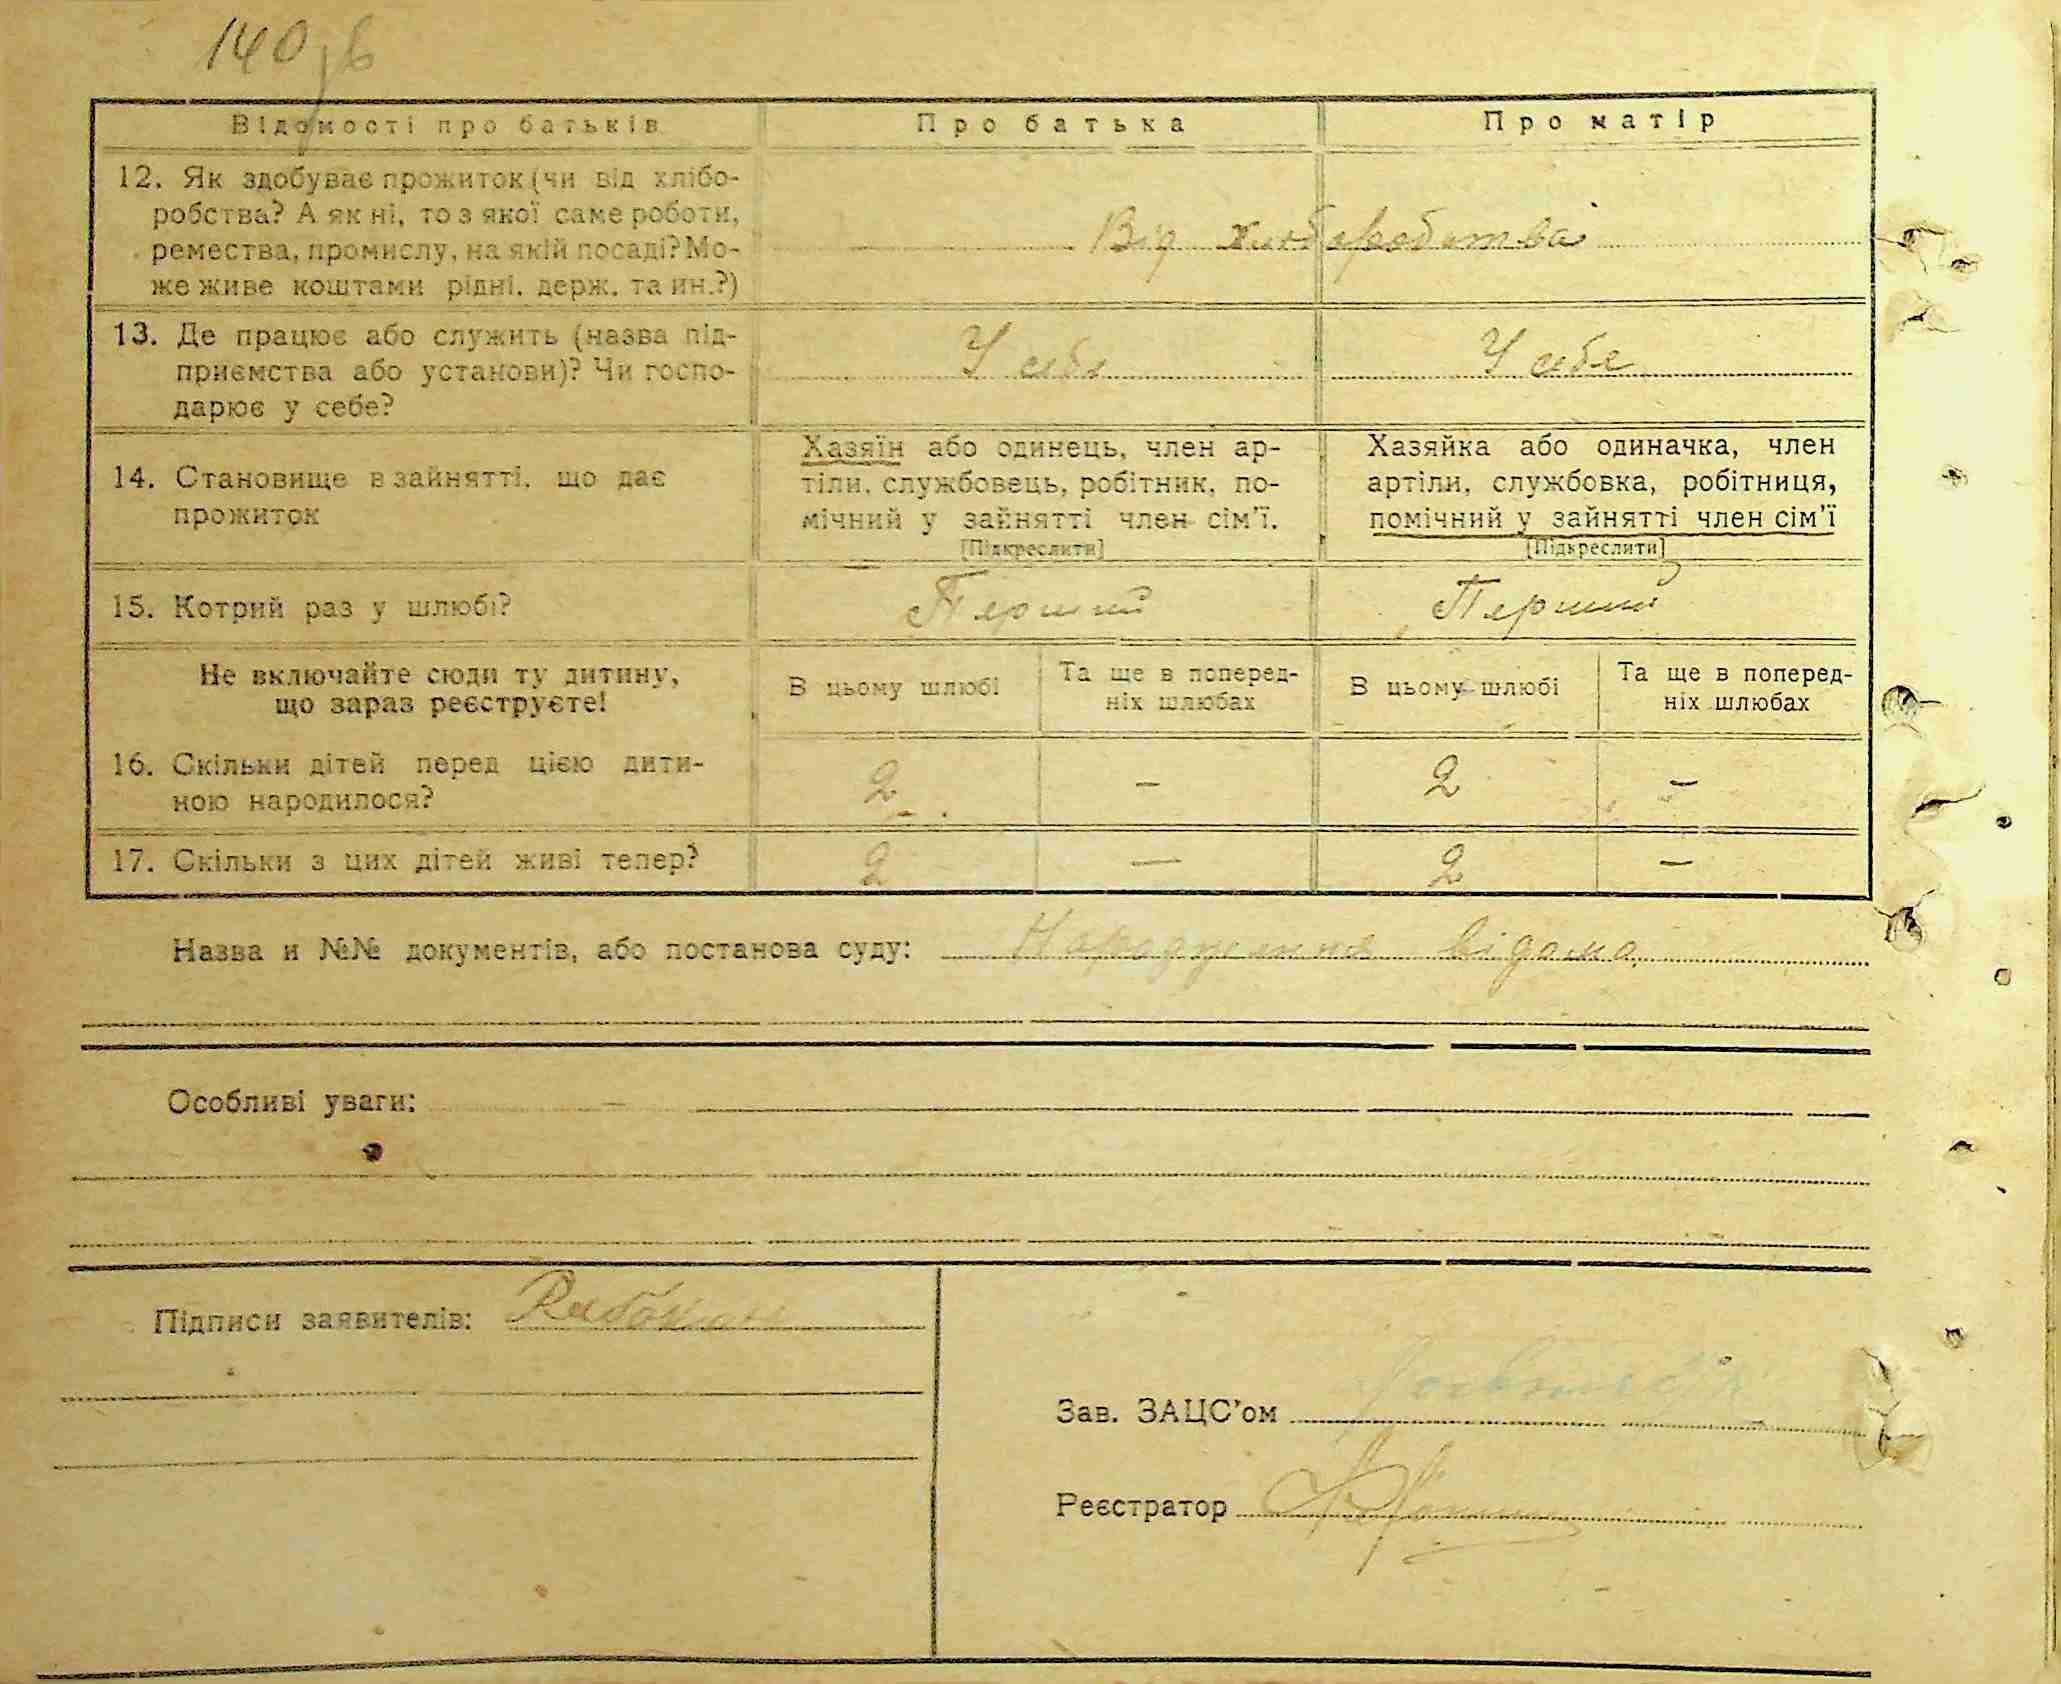 140 зв
Відомості про батьків Про батька Про матір
12. Як здобуває прожиток (чи від хлібо-
робства? А як ні, то з якої саме роботи,
ремества, промислу, на якій посаді? Мо-
же живе коштами рідні, держ. та ин.?)
Від хліборобства
13. Де працює або служить (назва під-
приємства або установи)? Чи госпо-
дарює у себе?
У себе У себе
14. Становище в зайнятті, що дає
прожиток
Хазяїн або одинець, член ар-
тіли, службовець, робітник, по-
мічний у зайнятті член сім'ї.
[Підкреслити]
Хазяйка або одиначка, член
артіли, службовка, робітниця,
помічний у зайнятті член сім'ї
[Підкреслити]
15. Котрий раз у шлюбі? Перший Перший
Не включайте сюди ту дитину,
що зараз реєструєте!
В цьому шлюбі
Та ще в поперед-
ніх шлюбах
В цьому шлюбі
Та ще в поперед-
ніх шлюбах
16. Скільки дітей перед цією дити-
ною народилося?
2 – 2 –
17. Скільки з цих дітей живі тепер? 2 — 2 –
Назва и №№ документів, або постанова суду: Народження відомо.
Особливі уваги: —
Підписи заявителів:
Зав. ЗАЦС'ом
Реєстратор